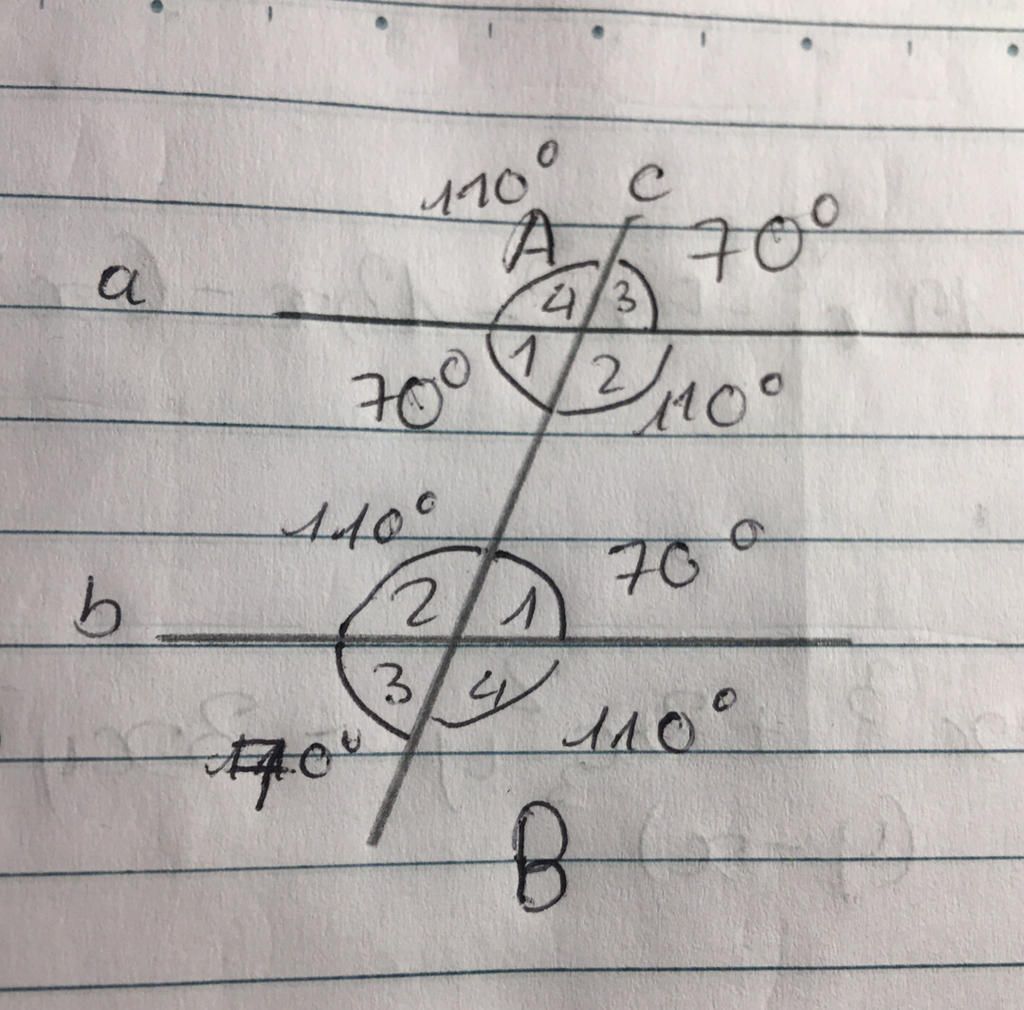 110° C
A 70°
a
4 3
1 2
70° 110°
110° 70°
b 2 1
3 4
70° 110°
B